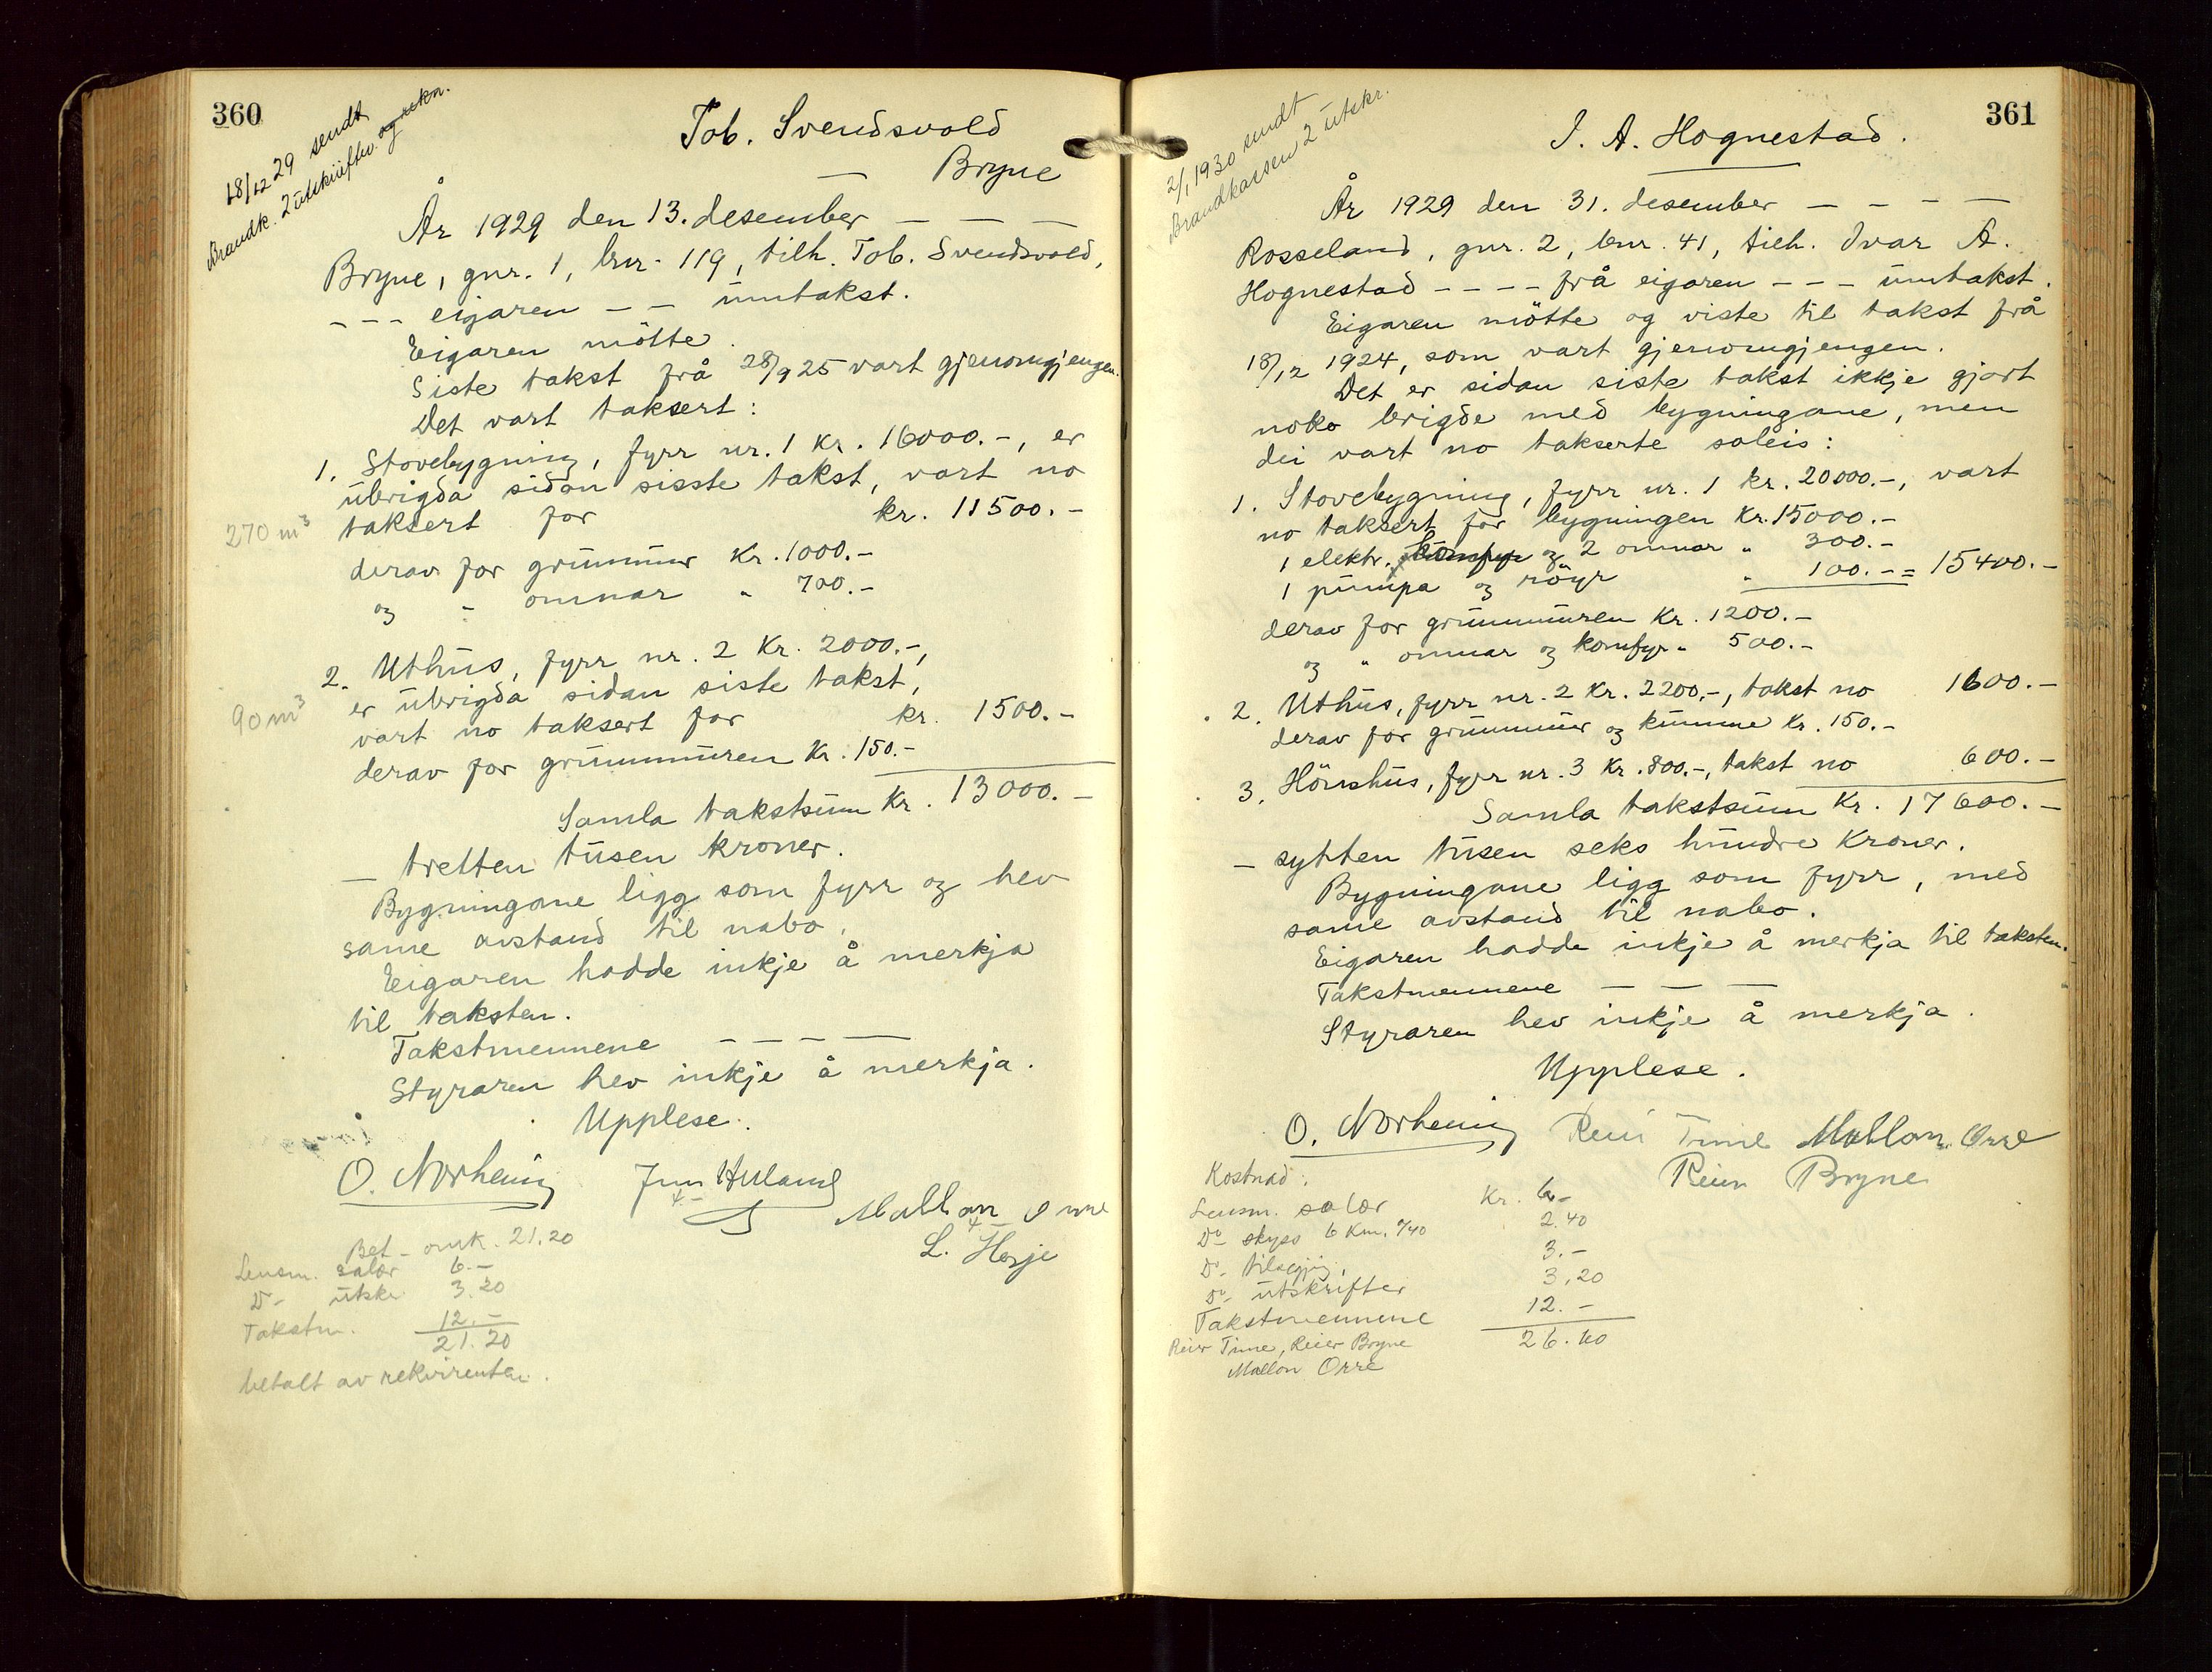 360
18/12 29 sendt
Brandk. 2 utskrifter og rekn.
Tob. Svendsvold
Bryne
År 1929 den 13. desember – – –
Bryne, gnr. 1, bnr. 119, tilh. Tob. Svendsvold,
– – – eigaren – – umtakst.
Eigaren mötte.
Siste takst frå 28/9 25 vart gjenomgjengen.
Det vart taksert:
1. Stovebygning, fyrr nr. 1 kr. 16000.-, er
übrigda sidan sisste takst, vart no
270 m³ taksert for kr. 11500.-
derav for grunnmur kr. 1000.-
og " omnar " 700.-
2. Uthus, fyrr nr. 2 kr. 2000.-,
er ubrigda sidan siste takst,
90 m³ vart no taksert for kr. 1500.-
derav for grunnmuren kr. 150.-
Samla takstsum kr. 13000.-
– tretten tusen kroner.
Bygningane ligg som fyrr og hev
same avstand til nabo.
Eigaren hadde inkje å merkja
til taksten.
Takstmennene – – – –
Styraren hev inkje å merkja.
Upplese.
O. Norheim
4-
Mallon Orre
4-
L. Herje
Bet. omk. 21.20
Lensm. salær 6.-
Do- utskr. 3.20
Takstm. 12.-
21.20
betalt av rekvirenten.
361
2/1 1930 sendt
Brandkassen 2 utskr.
I. A. Hognestad.
År 1929 den 31. desember – – – –
Rosseland, gnr. 2, bnr. 41, tilh. Ivar A.
Hognestad – – – – frå eigaren – – – umtakst.
Eigaren mötte og viste til takst frå
18/12 1924, som vart gjenomgjengen.
Det er sidan siste takst ikkje gjort
noko brigde med bygningane, men
dei vart no takserte soleis:
1. Stovebygning, fyrr nr. 1 kr. 20000.-, vart
no taksert for bygningen kr. 15000.-
1 elektr. komfyr og 2 omnar " 300.-
1 pumpa og röyr " 100.- = 15400.-
derav for grunnmuren kr. 1200.-
og " omnar og komfyr " 500.-
2. Uthus, fyrr nr. 2 kr. 2200,-, takst no 1600.-
derav for grunnmur og kumme kr. 150.-
3. Hönshus, fyrr nr. 3 kr. 800.-, takst no 600.-
Samla takstsum kr. 17600.-
– sytten tusen seks hundre kroner.
Bygningane ligg som fyrr, med
same avstand til nabo.
Eigaren hadde inkje å merkja til taksten.
Takstmennene – – –
Styraren hev inkje å merkja.
Upplese.
O. Norheim Reier Time Mallon Orre
Reier Bryne
Kostnad:
Lensm. salær kr. 6.-
Do- skyss 6 km. a/40 2.40
Do- 3.-
Do- utskrifter 3,20
Takstmennene 12.-
Reier Time, Reier Bryne 26.60
Mallon Orre